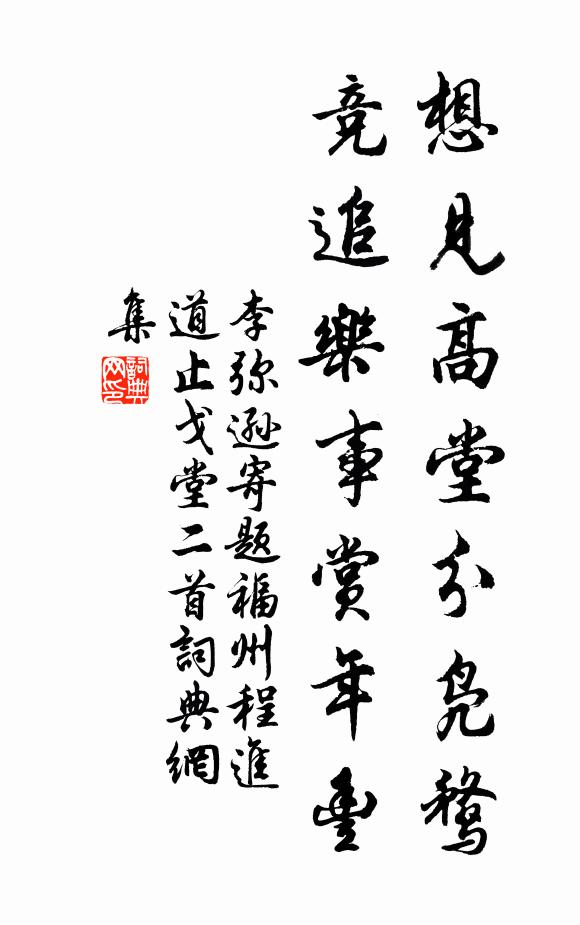 想見高堂分鳧鶩
竞追樂事賞年豐
李弥遜寄题福州程進
道止戈堂二首詞典網
集
詞典
网印